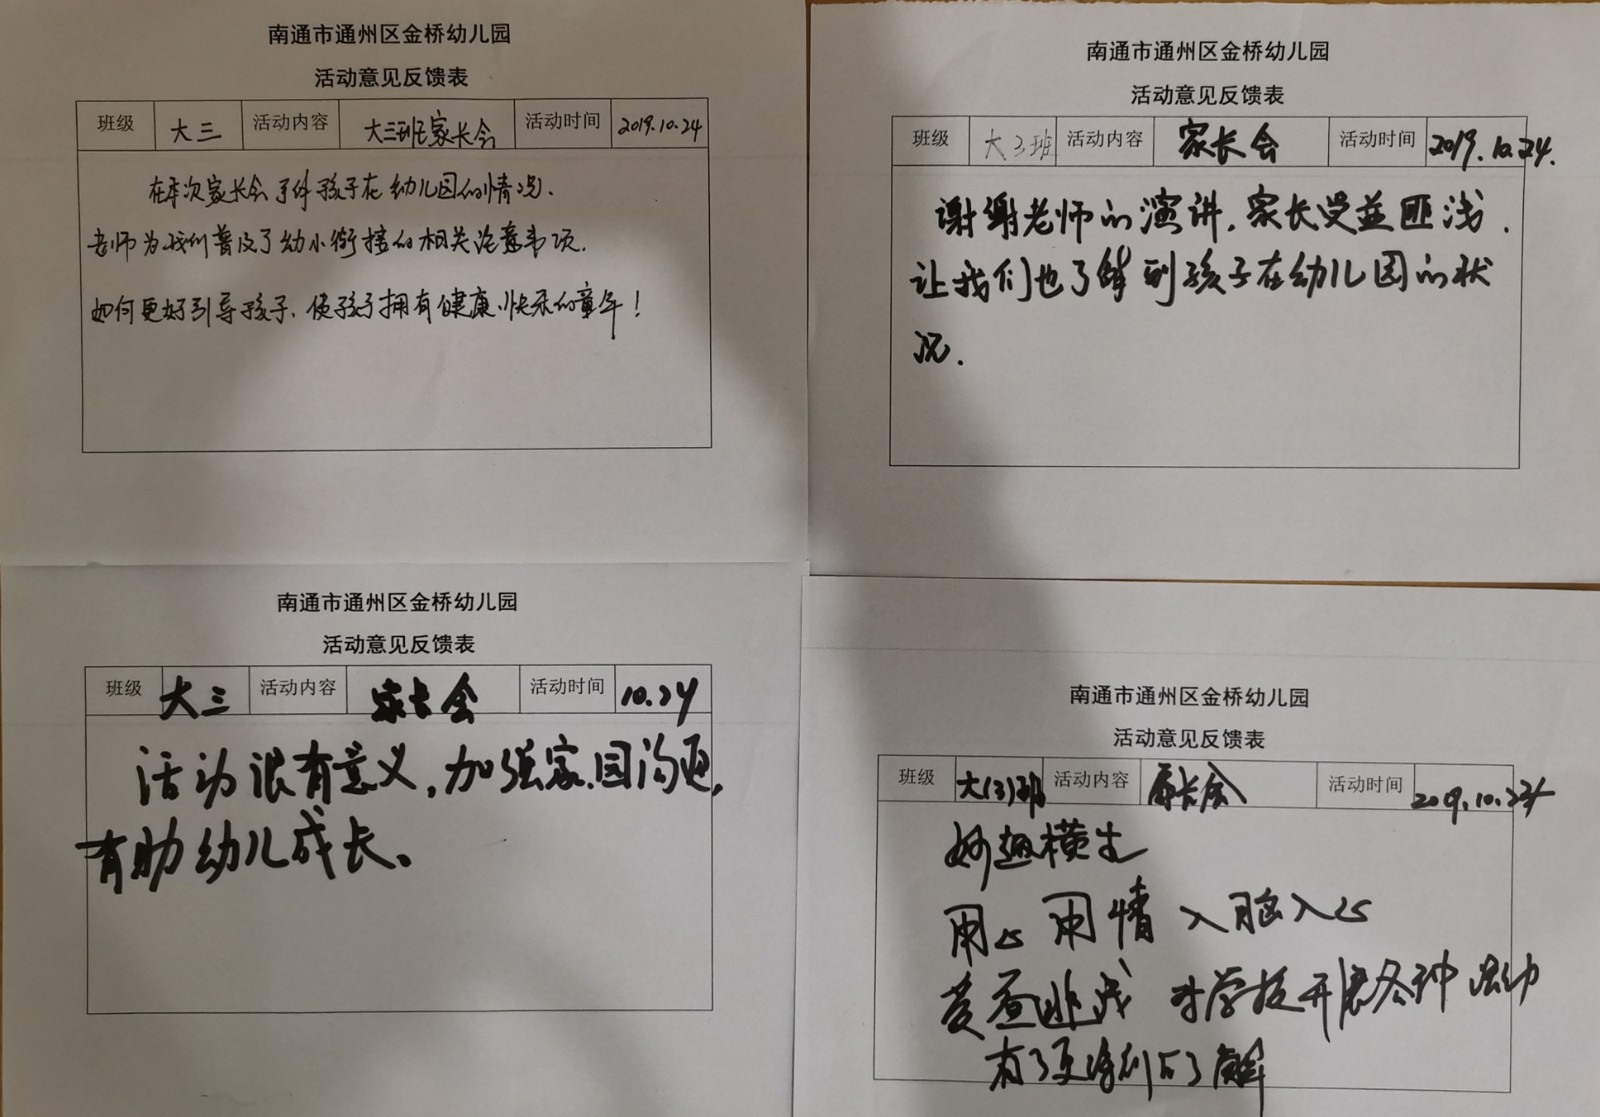 南通市通州区金桥幼儿园
活动意见反馈表
班级 大三 活动内容 大三班家长会 活动时间 2019.10.24
在本次家长会了解孩子在幼儿园的情况.
老师为我们普及了幼小衔接的相关注意事项.
如何更好引导孩子.使孩子拥有健康.快乐的童年!
南通市通州区金桥幼儿园
活动意见反馈表
班级 大3班 活动内容 家长会 活动时间 2019.10.24.
谢谢老师的演讲.家长受益匪浅.
让我们也了解到孩子在幼儿园的状
况.
南通市通州区金桥幼儿园
活动意见反馈表
班级 大三 活动内容 家长会 活动时间 10.24
活动很有意义,加强家.园沟通,
有助幼儿成长。
南通市通州区金桥幼儿园
活动意见反馈表
班级 大(3)班 活动内容 家长会 活动时间 2019.10.24
妙趣横生
用心用情 入脑入心
受益匪浅 对学校开展各种活动
有了更的了解